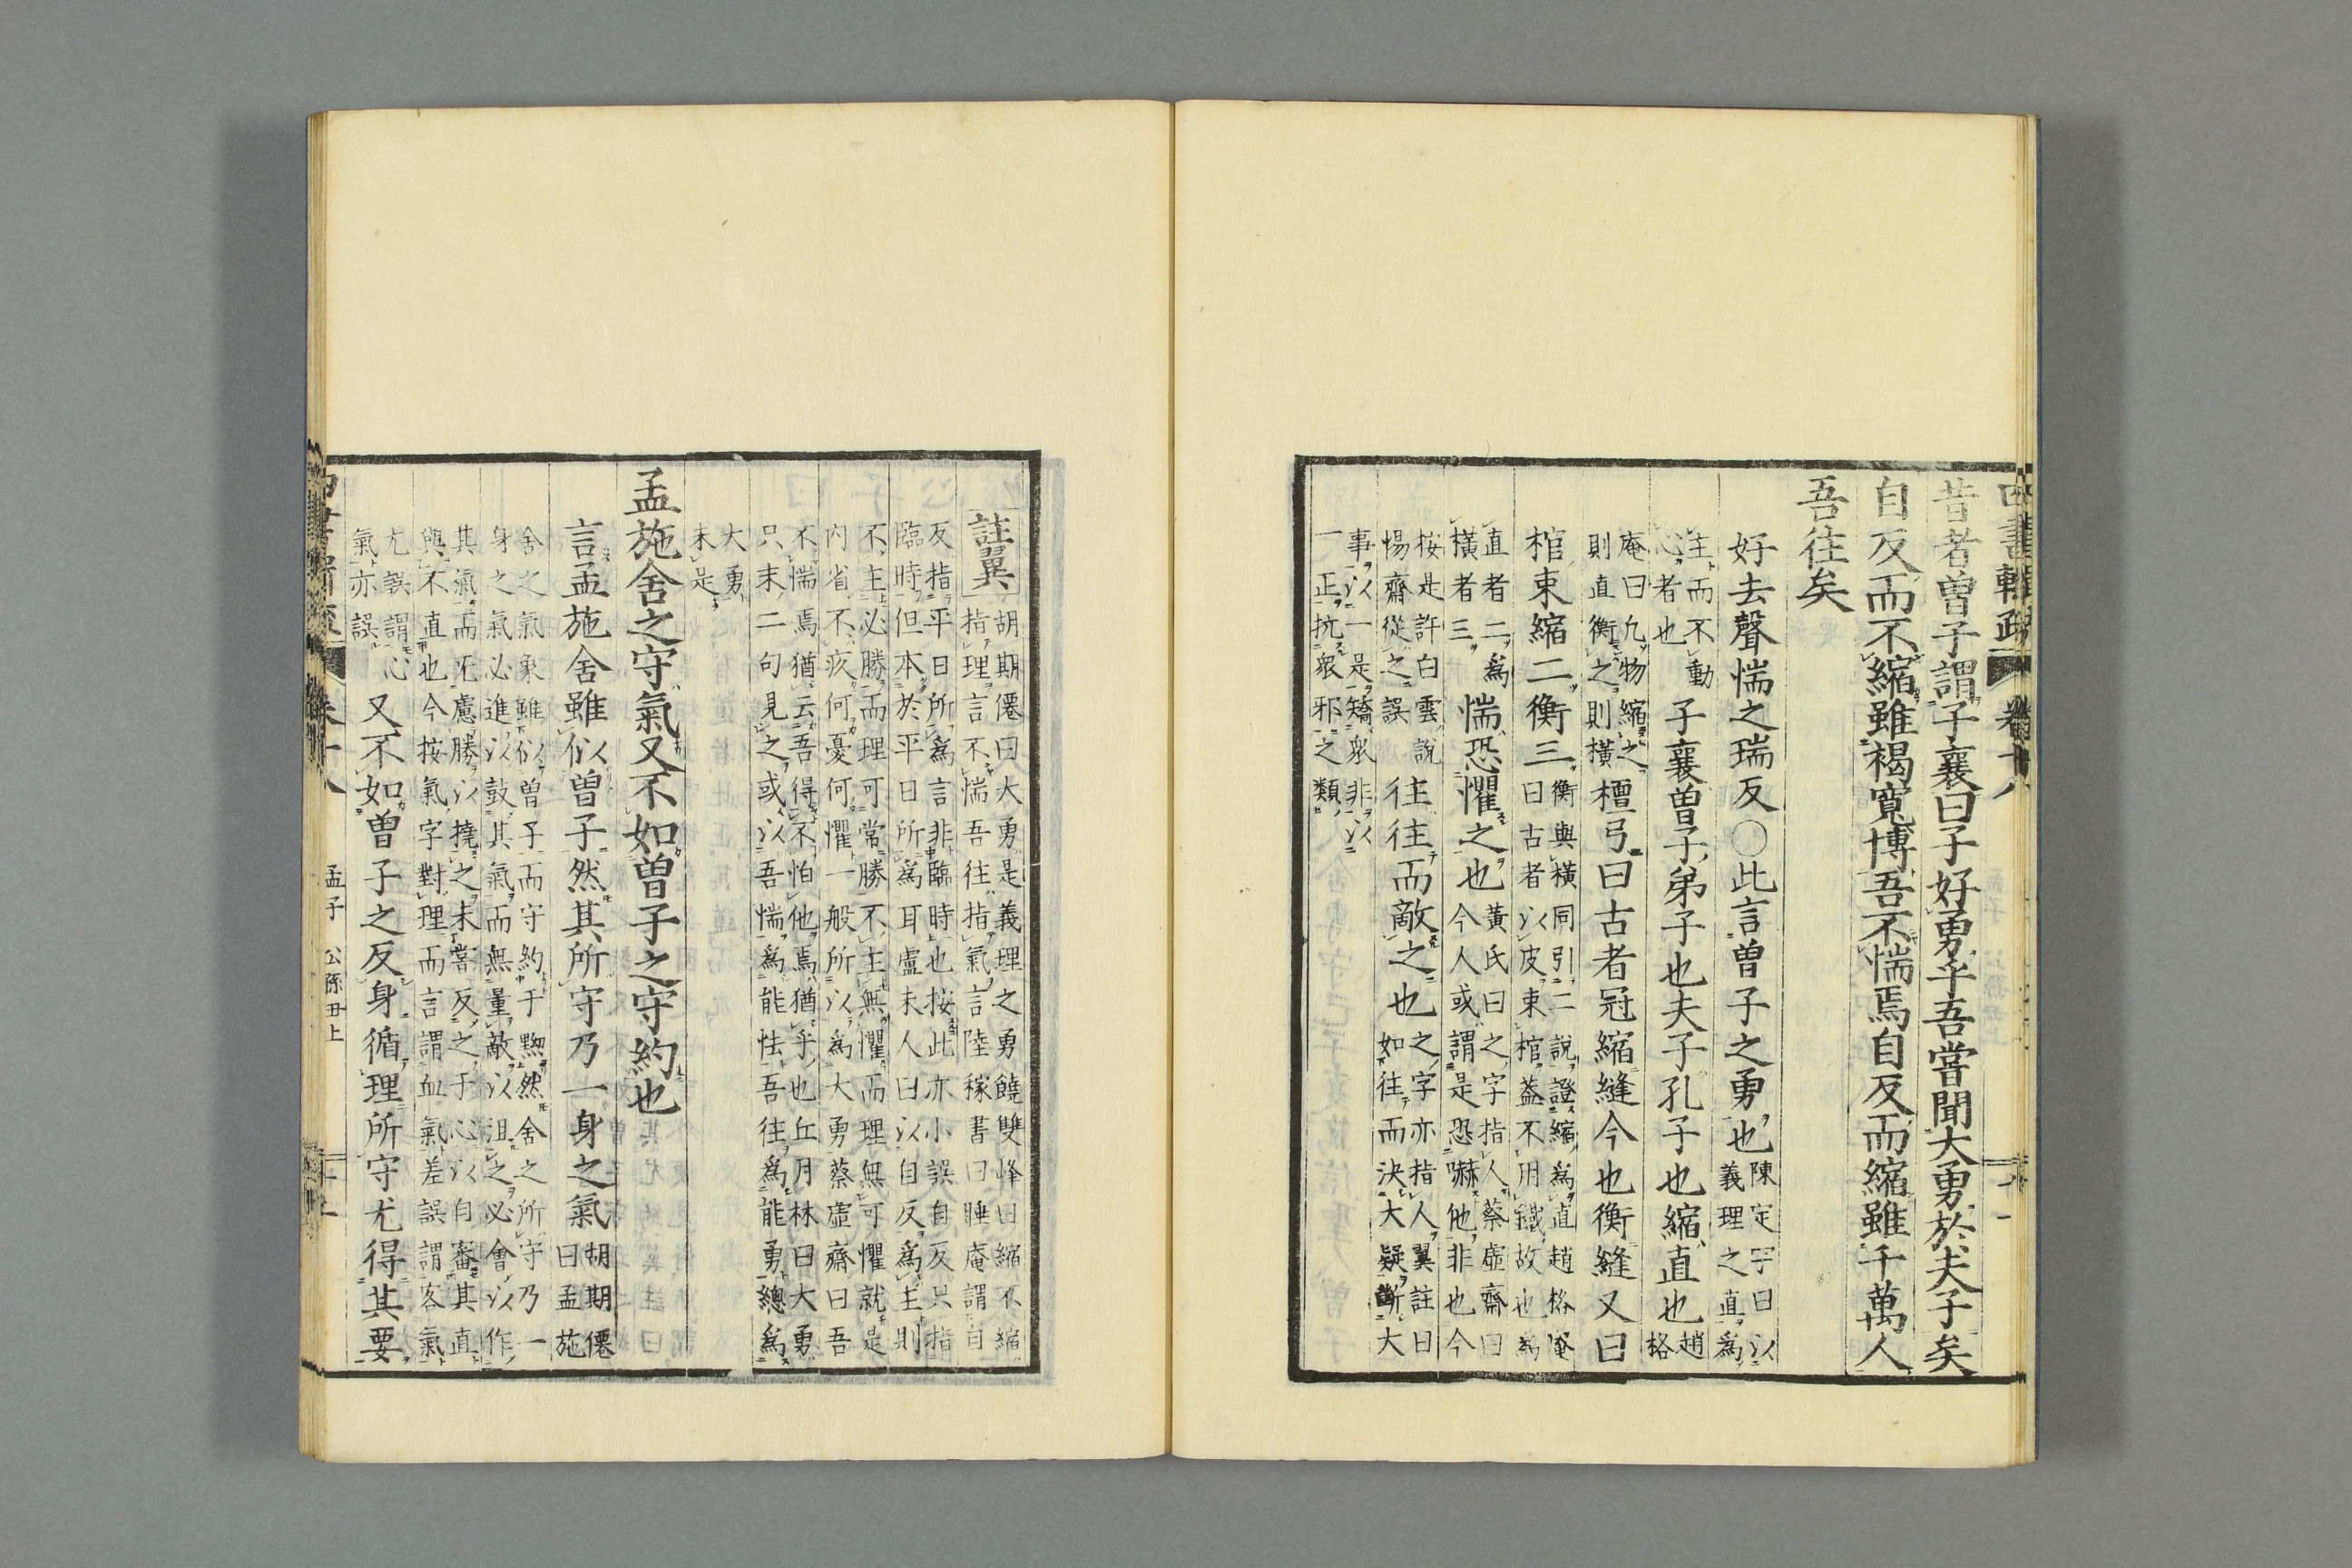 四書輯疏 卷十八
昔者曾子謂子襄曰子好勇乎吾嘗聞大勇於夫子矣
自反而不縮雖褐寬博吾不惴焉自反而縮雖千萬人
吾往矣
好去聲惴之瑞反○此言曾子之勇也陳定宇曰以
義理之直爲
主而不動
心者也子襄曾子弟子也夫子孔子也縮直也趙
格
庵曰凡物縮之
則直衡之則橫檀弓曰古者冠縮縫今也衡縫又曰
棺束縮二衡三衡與橫同引二說證縮爲直趙格庵
曰古者以皮束棺蓋不用鐵故也爲
直者二爲
橫者三惴恐懼之也黃氏曰之字指人蔡虛齋曰
今人或謂是恐嚇他非也今
按是許白雲說
惕齋從之誤往往而敵之也之字亦指人翼註曰
如往而決大疑斷大
事以一是矯衆非以
一正抗衆邪之類
註翼胡期僊曰大勇是義理之勇饒雙峰曰縮不縮
指理言不惴吾往指氣言陸稼書曰睡庵謂自
反指平日所爲言非臨時也按此亦小誤自反只指
臨時但本於平日所爲耳盧未人曰以自反爲主則
不主必勝而理可常勝不主無懼而理無可懼就是
內省不疚何憂何懼一般所以爲大勇蔡虛齋曰吾
不惴焉猶云吾得不怕他焉猶乎也丘月林曰大勇
只末二句見之或以吾惴爲能怯吾往爲能勇總爲
大勇
未是
孟施舍之守氣又不如曾子之守約也
言孟施舍雖似曾子然其所守乃一身之氣胡期僊
曰孟施
舍之氣象雖似曾子而守約于黝然舍之所守乃一
身之氣必進以鼓其氣而無量敵以沮之必會以作
其氣而无慮勝以撓之未嘗反之于心以自審其直
與不直也今按氣字對理而言謂血氣差誤謂客氣
尤誤謂心
氣亦誤又不如曾子之反身循理所守尤得其要
卷十八 孟子 公孫丑上